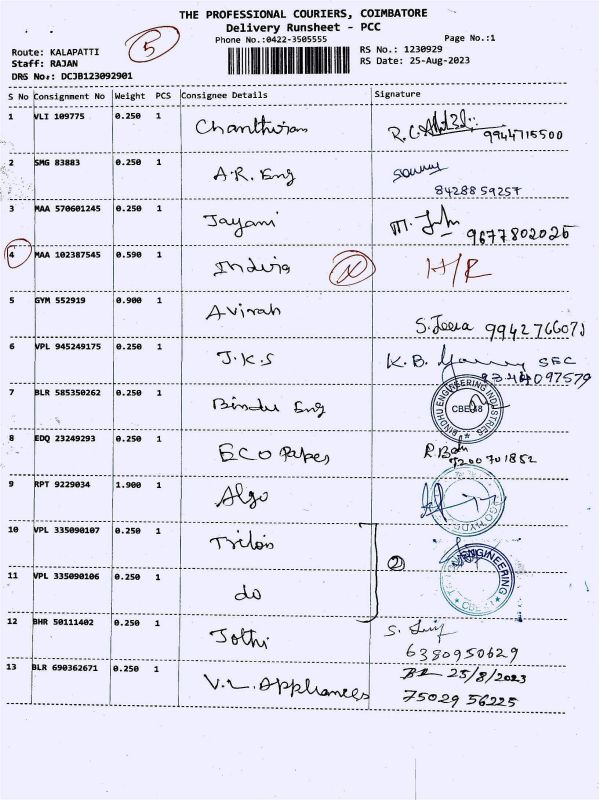 THE PROFESSIONAL COURIERS, COIMBATORE
Delivery Runsheet - PCC
Phone No.:0422-3505555 Page No.:1
5
Route: KALAPATTI RS No.: 1230929
Staff: RAJAN RS Date: 25-Aug-2023
DRS No.: DCJB123092901
S No Consignment No Weight PCS Consignee Details Signature
1 VLI 109775 0.250 1 Chanthiram 9944715500
2 SMG 83883 0.250 1 A.R. Eng
8428859257
3 MAA 570601245 0.250 1 Jayani M. 9677802025
4 MAA 102387545 0.590 1 Indira N H/R
5 GYM 552919 0.900 1 Avirah S. Jeeva 9942766071
6 VPL 945249175 0.250 1 J.K.S K.B. SEC
9344097579
7 BLR 585350262 0.250 1 Bindu Eng BINDHU ENGINEERING INDUSTRIES
8 EDQ 23249293 0.250 1 ECO Papes R.
7200701852
9 RPT 9229034 1.900 1 Algo
10 VPL 335090107 0.250 1 Trilois 2 ENGINEERING
11 VPL 335090106 0.250 1 do
12 BHR 50111402 0.250 1 Jothi S.
6380950629
13 BLR 690362671 0.250 1 V.L. Appliancees 25/8/2023
75029 56225